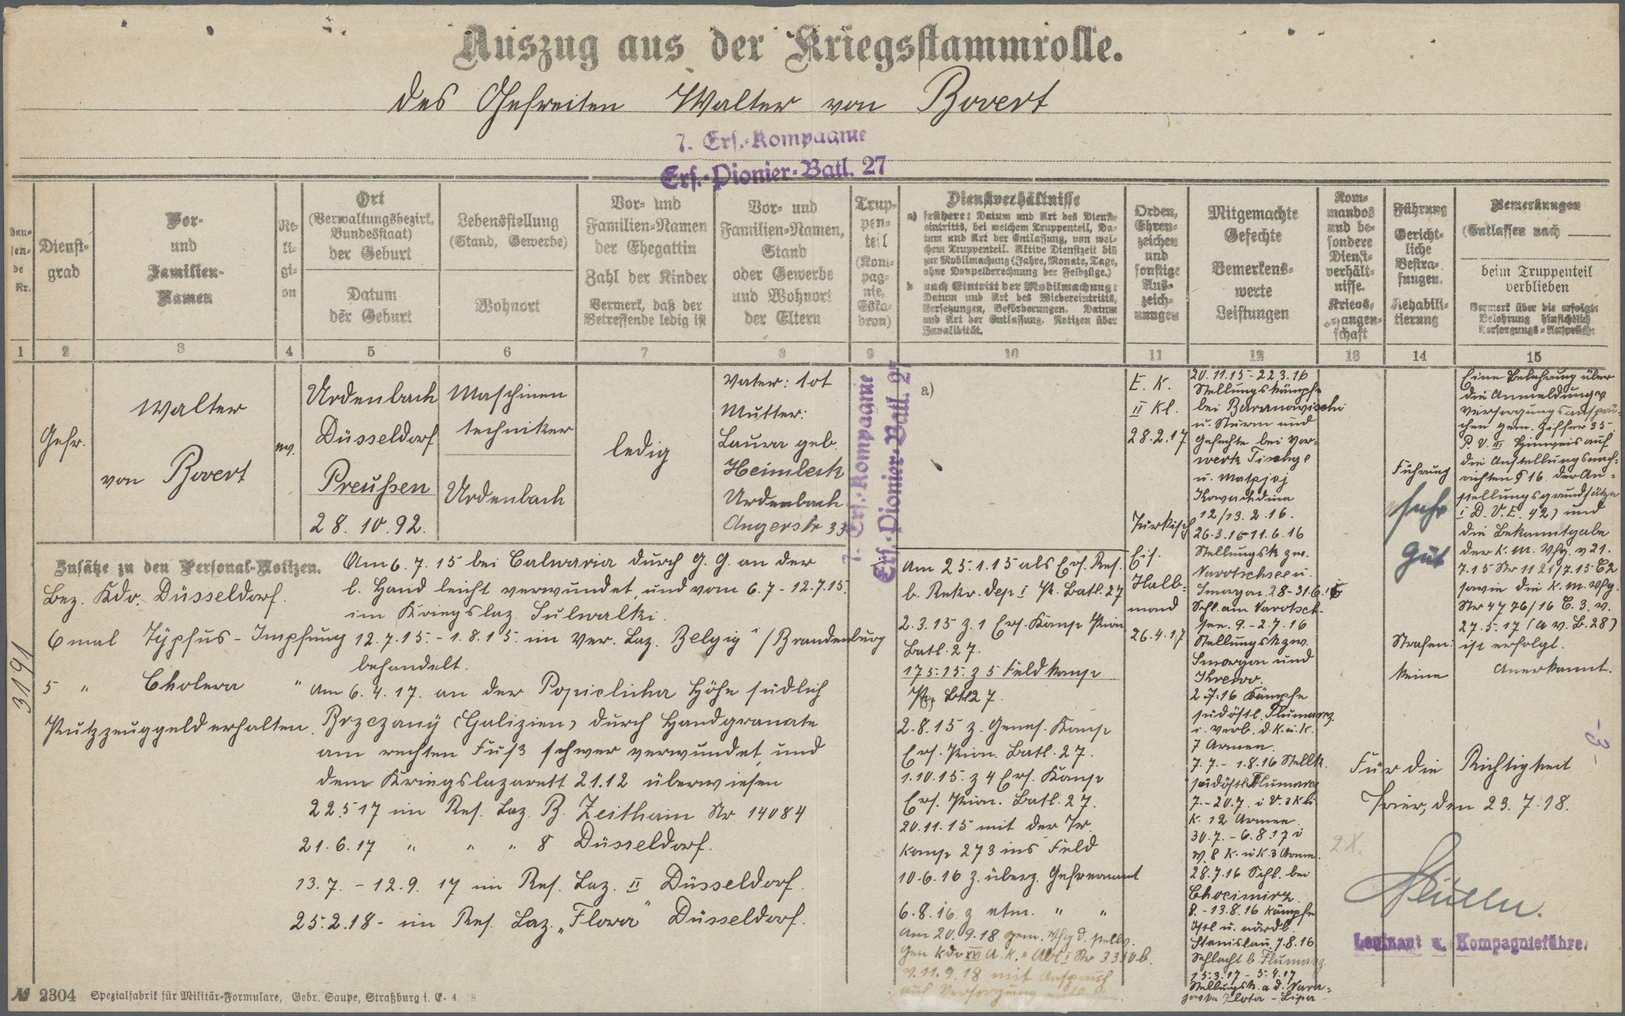 Auszug aus der Kriegsstammrolle.
des Gefreiten Walter von Bovert
7. Ers.-Kompagnie
Ers.-Pionier-Batl. 27
Lau-
fen-
de
Nr.
Dienst-
grad
Vor-
und
Familien-
Namen
Re-
li-
gi-
on
Ort
(Verwaltungsbezirk,
Bundesstaat)
der Geburt
Datum
der Geburt
Lebensstellung
(Stand, Gewerbe)
Wohnort
Vor- und
Familien-Namen
der Ehegattin
Zahl der Kinder
Vermerk, daß der
Betreffende ledig ist
Vor- und
Familien-Namen,
Stand
oder Gewerbe
und Wohnort
der Eltern
Trup-
pen-
teil
(Kom-
pag-
nie,
Eska-
dron)
Dienstverhältnisse
a) frühere: Datum und Art des Dienst-
eintritts, bei welchem Truppenteil, Da-
tum und Art der Entlassung, von wel-
chem Truppenteil. Aktive Dienstzeit bis
zur Mobilmachung (Jahre, Monate, Tage,
ohne Doppelberechnung der Feldzüge.)
b) nach Eintritt der Mobilmachung:
Datum und Art des Wiedereintritts,
Versetzungen, Beförderungen. Datum
und Art der Entlassung. Notizen über
Invalidität.
Orden,
Ehren-
zeichen
und
sonstige
Aus-
zeich-
nungen
Mitgemachte
Gefechte
Bemerkens-
werte
Leistungen
Kom-
mandos
und be-
sondere
Dienst-
verhält-
nisse.
Kriegs-
gefangen-
schaft
Führung
Gericht-
liche
Bestra-
fungen.
Rehabili-
tierung
Bemerkungen
(Entlassen nach
beim Truppenteil
verblieben
Vermerk über die erfolgte
Belehrung hinsichtlich
Versorgungs-Ansprüche
1 2 3 4 5 6 7 8 9 10 11 12 13 14 15
Gefr.
Walter
von Bovert
ev.
Urdenbach
Düsseldorf
Preußen
28.10.92.
Maschinen
techniker
Urdenbach
ledig
Vater: tot
Mutter:
Laura geb.
Heimbeck
Urdenbach
Angerstr 33
7. Ers.-Kompagnie
Ers.-Pionier-Batl. 27
a)
E. K.
II Kl.
28.2.17
Türkisch
Eis.
Halb-
mond
26.4.17
20.11.15-22.3.16
Stellungskämpfe
bei Baranowischi
u. Sturm und
Gefechte bei Vor-
werk
u.
12/13.2.16.
26.3.16 11.6.16
Stellungsk zw.
Narotschsee u.
Smorgon
Schl. am Narotsch
See. 9.-2.7.16
Stellungsk zw.
Smorgon und
Krewo.
2.7.16 Kämpfe
südöstl. Tlumacz
i. Verb. d. k. u. k.
7 Armee.
7.7.-1.8.16 Stellk.
südöstl Tlumacz
K. 12 Armee.
30.7.-6.8.17 i
28.7.16 Schl. bei
Chocimirz.
8.-13.8.16 Kämpfe
östl u. nördl.
Stanislau. 7.8.16
Schlacht b. Tlumacz
25.3.17-5.4.17
Stellungsk. a. d. Nara-
jowka Zlota-Lipa
Führung
sehr
gut
Strafen:
keine
Eine Belehrung über
die Anmeldung v
Versorgungsansprü-
chen gem. Ziffer 35
P. V. II Hinweis auf
die Anstellungsnach-
richten § 16 der An-
stellungsgrundsätze
(D.V.E. 42) und
die Bekanntgabe
der K. M. Vfg. v 21.
7.15 Nr 1121/7.15 C2
sowie die K. M. Vfg.
Nr 4776/16 C. 3. v.
27.5.17 (A. V. B. 28)
ist erfolgt.
Anerkannt.
Zusätze zu den Personal-Notizen.
Bez. Kdo. Düsseldorf.
6 mal Typhus-Impfung
5 " Cholera "
Putzzeuggeld erhalten.
3191
Am 6.7.15 bei Calwaria durch G. G. an der
l. Hand leicht verwundet, und vom 6.7-12.7.15.
im Kriegslaz. Sulwalki.
12.7.15.-1.8.15. im Ver. Laz. Belzig / Brandenburg
behandelt.
Am 6.4.17. an der Popielicha Höhe südlich
Brzezany (Galizien) durch Handgranate
am rechten Fuß schwer verwundet, und
dem Kriegslazarett 21.12 überwiesen
22.5.17 im Res. Laz. B. Zeithain Nr 14084
21.6.17 " " " 8 Düsseldorf.
13.7.-12.9.17 im Res. Laz. II Düsseldorf.
25.2.18- im Res. Laz. "Flora" Düsseldorf.
Am 25.1.15 als Ers. Res.
b. Rekr. Dep I Pi. Batl. 27
2.3.15 z. 1 Ers. Komp Pion
Batl. 27.
17.5.15. z 5 Feldkomp
2.8.15 z. Genes. Komp
Ers. Pion. Batl. 27.
1.10.15. z 4 Ers. Komp
Ers. Pion. Batl. 27.
20.11.15 mit der Pr.
Komp 273 ins Feld
10.6.16 z. überz. Gefr ernannt
6.8.16 z etm. " "
Am 20.9.18 gem. Vfg d. stellv.
v. 11.9.18 mit Anspruch
auf Versorgung
Für die Richtigkeit
Trier, den 23.7.18.
2X.
Leutnant u. Kompagnieführer.
-3-
№ 2304 Spezialfabrik für Militär-Formulare, Gebr. Saupe, Straßburg i. E.